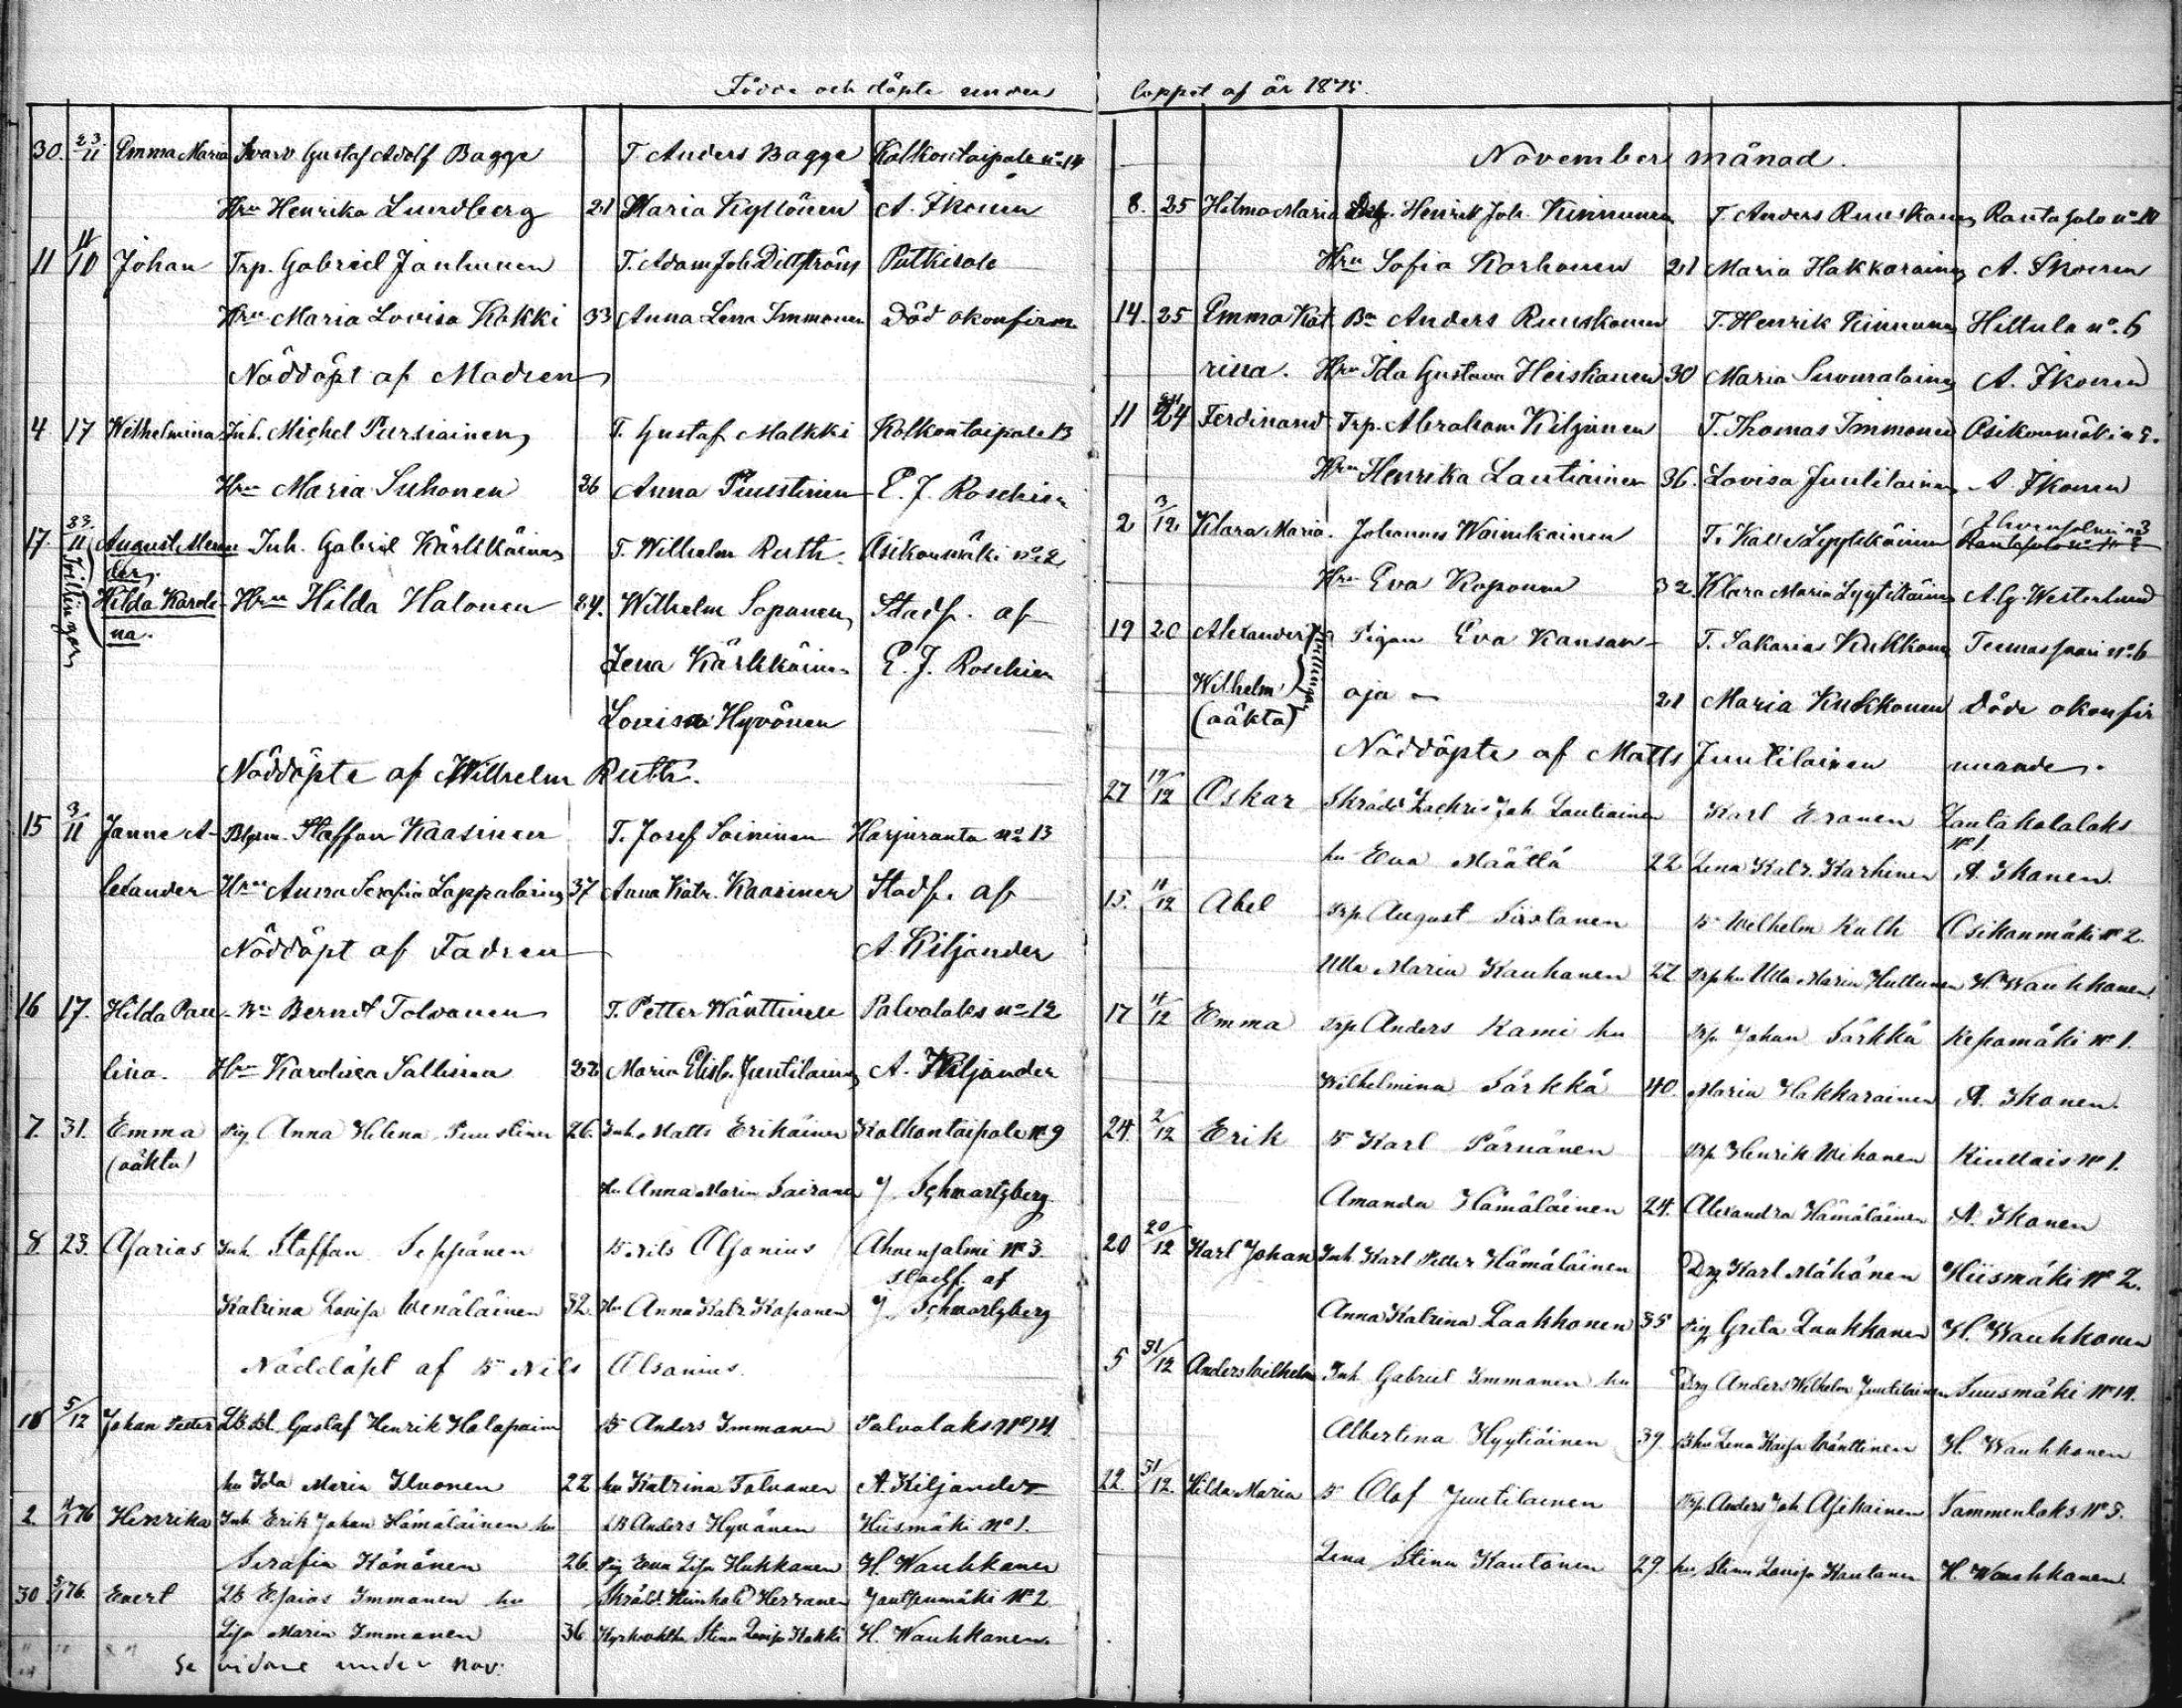 Födde och döpte under loppet af år 1875.
30. 23/11 Emma Maria Svarv. Gustaf Adolf Bagge T. Anders Bagge Kolkontaipale no 14
Hru Henrika Lundberg 21 Maria Kyllönen A. Ikonen
11 11/10 Johan Trp. Gabriel Janhunen T. Adam Joh. Putkisalo
Hru Maria Lovisa Kokki 33 Anna Lena Immonen Död okonfirm
Nöddöpt af Modren
4 17 Wilhelmina Inh. Michel Pursiainen T. Gustaf Malkki Kolkontaipale 13
Hru Maria Suhonen 26 Anna Puustinen E. J. Roschier
17 23/11 August Alexan Inh. Gabriel Kärkkäinen T. Wilhelm Ruth. Osikonmäki no 2
der.
Tvillingar
Hilda Karoli- Hru Hilda Halonen 24. Wilhelm Soponen Stadf. af
na.
Lena Kärkkäinen E. J. Roschier
Lovisa Hyvönen
Nöddöpte af Wilhelm Ruth.
15 3/11 Janne A- Staffan Kaasinen T. Josef Soininen Harjuranta no 13
lexander Hru Anna Serafia Lappalainen 37 Anna Katr. Kaasinen Stadf. af
Nöddöpt af Fadren A. Kiljander
16 17. Hilda Pau- Bn Bernt Tolvanen T. Petter Wänttinen Palvalaks no 12
lina. Hru Karolina Sallinen 22 Maria Elisb. Juutilainen A. Kiljander
7. 31. Emma Pig Anna Helena Puustinen 26. Inh. Matts Erikäinen Kolkontaipale No 9
(oäkta)
Hu Anna Maria Sairanen J. Schwartzberg
8 23. Asarias Inh. Staffan Seppänen B. Nils Alsanius Ahvensalmi No 3
stadf. af
Katrina Lovisa Wenäläinen 32. Hu Anna Katr Koponen J. Schwartzberg
Nöddöpt af B Nils Alsanius.
18 5/12 Johan Petter Gustaf Henrik Halapainen B Anders Immonen Palvalaks No 14
hu Ida Maria Iluonen 22 hu Katrina Tolvanen A. Kiljander
2. 4/1 76 Henrika Inh Erik Johan Hämäläinen hu LB Anders Hyvönen Hiismäki No 1.
Serafia Könönen 26. Pig Eva Lisa Hukkanen H. Wauhkonen
30 5/1 76. Evert LB Esaias Immonen hu Herranen No 2
Lisa Maria Immonen 36 Stina Lovisa Kokki H. Wauhkonen
Se vidare under Nov:
November månad.
8. 25 Hilma Maria Drg. Henrik Joh. Kinnunen T. Anders Ruuskanen Rantasalo no 10
Hru Sofia Korhonen 21 Maria Hakkarainen A. Ikonen
14. 25 Emma Kat Bn Anders Ruuskanen T. Henrik Kinnunen Hiltula no 6
rina. Hru Ida Gustava Heiskanen 30 Maria Suomalainen A. Ikonen
11 24 Ferdinand Trp. Abraham Kiljunen T. Thomas Immonen Osikonmäki n 5.
Hru Henrika Lautiainen 36. Lovisa Juutilainen A. Ikonen
2 3/12 Klara Maria. Johannes Wainikainen T. Kalle Lyytikäinen Ahvensalmi n 3
Hru Eva Koponen 32. Klara Maria Lyytikäinen A. G. Westerlund
19 20 Alexander Pigan Eva Kansan- T. Sakarias Kukkonen no 6
Tvillingar
Wilhelm oja 21 Maria Kukkonen Döde okonfir
(oäkta)
Nöddöpte af Matts Juutilainen merade.
27 19/12 Oskar Skrädd. Zachris Joh Lautiainen Karl Eronen Lautakotalaks
No 1
hu Eva Määttä 22 Lena Katr. Karhinen A. Ikonen.
15. 11/12 Abel Trp August Siistonen B Wilhelm Ruth Osikonmäki No 2.
Ulla Maria Kauhanen 27 Trp hu Ulla Maria Huttunen H. Wauhkonen.
17 11/12 Emma Trp Anders Rami hu Trp. Johan Särkkä Repomäki No 1.
Wilhelmina Särkkä 40. Maria Hakkarainen A. Ikonen.
24. 2/12 Erik B Karl Pärnänen Trp. Henrik Mihonen Kiullais No 1.
Amanda Hämäläinen 24. Alexandra Hämäläinen A. Ikonen
20 20/12 Karl Johan Inh. Karl Petter Hämäläinen Drg Karl Mähönen Hiismäki No 2.
Anna Katrina Laakkonen 35 Pig Greta Laukkanen H. Wauhkonen
5 31/12 Anders Wilhelm Inh. Gabriel Immonen hu Drg Anders Wilhelm Juutilainen Suusmäki No 14.
Albertina Hyytiäinen 39 B hu Lena Kaisa Wänttinen H. Wauhkonen
22. 31/12. Hilda Maria B Olof Juutilainen Trp. Anders Joh Asikainen Sammenlaks No 5.
Lena Stina Kautonen 29 hu Stina Lovisa Kautonen H. Wauhkonen.